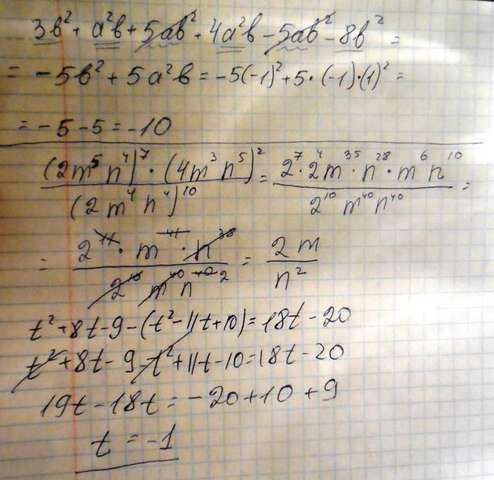 3b² + a²b + 5ab² + 4a²b - 5ab² - 8b² =
= -5b² + 5a²b = -5(-1)² + 5·(-1)·(1)² =
= -5 - 5 = -10
(2m⁵n⁴)⁷ · (4m³n⁵)² / (2m⁴n⁴)¹⁰ = 2⁷ · 2⁴m³⁵ · n²⁸ · m⁶n¹⁰ / 2¹⁰m⁴⁰n⁴⁰ =
= 2¹¹ · m⁴¹ · n³⁸ / 2¹⁰m⁴⁰n⁴⁰ ² = 2m / n²
t² + 8t - 9 - (t² - 11t + 10) = 18t - 20
t² + 8t - 9 - t² + 11t - 10 = 18t - 20
19t - 18t = -20 + 10 + 9
t = -1